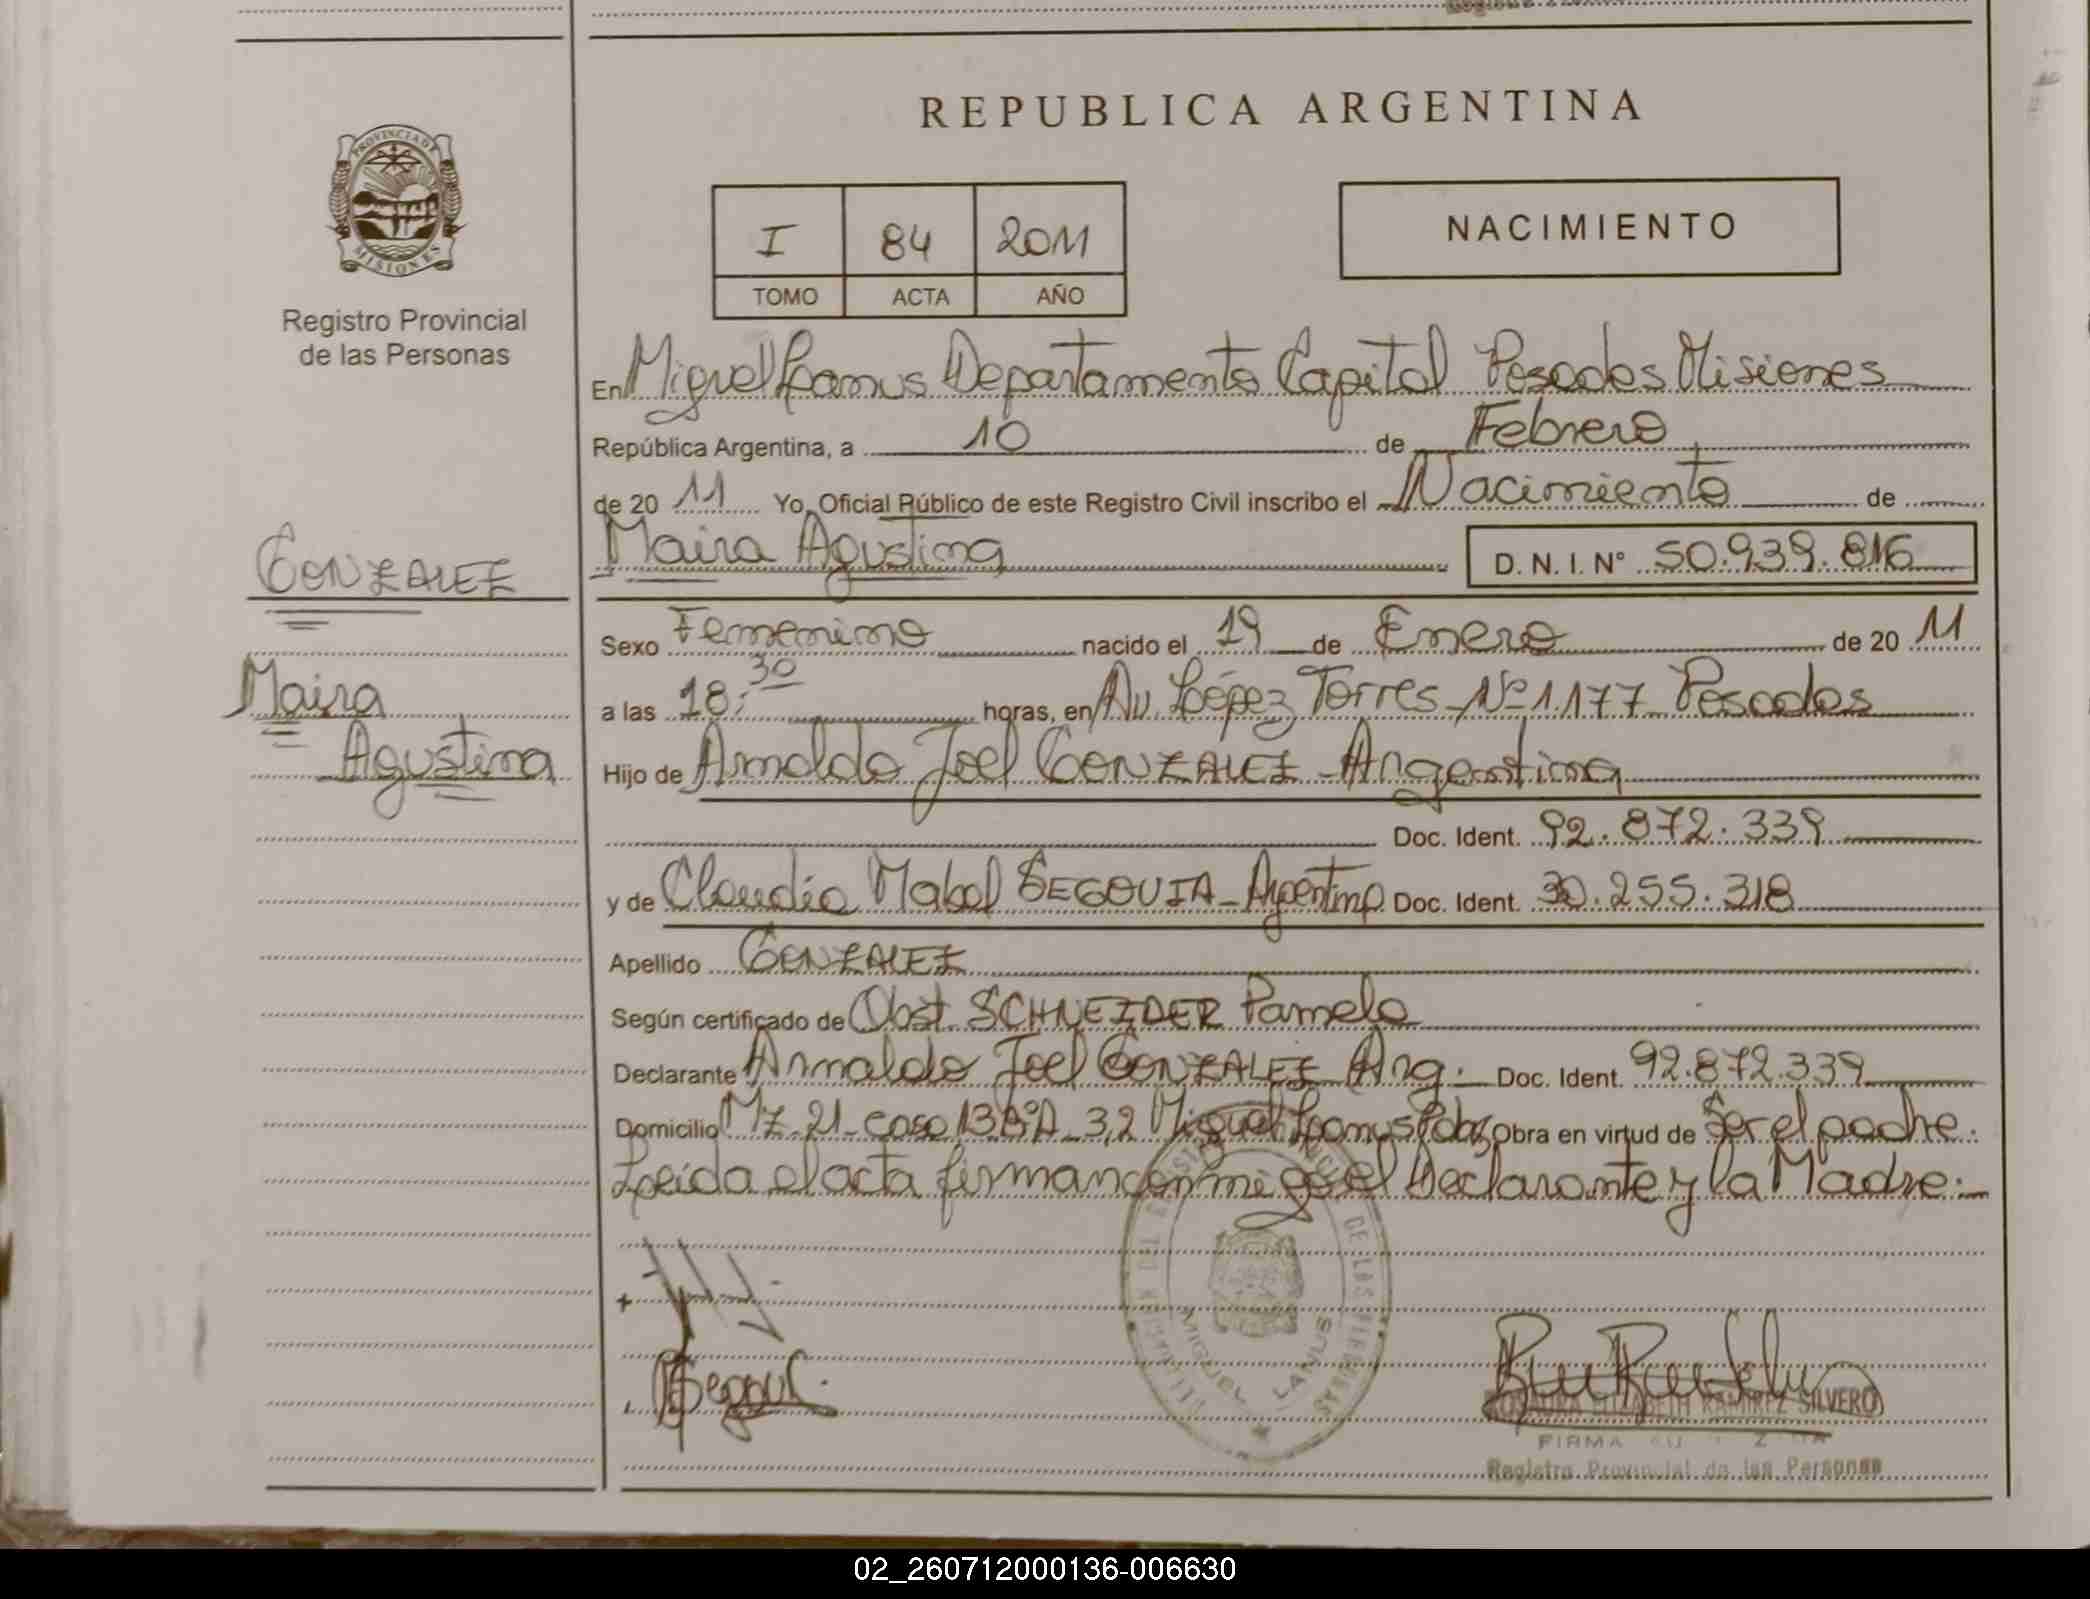 REPUBLICA ARGENTINA
PROVINCIA DE
MISIONES
Registro Provincial
de las Personas
I 84 2011
TOMO ACTA AÑO
NACIMIENTO
En Miguel Lanus Departamento Capital Posadas Misiones
República Argentina, a 10 de Febrero
de 20 11 Yo, Oficial Público de este Registro Civil inscribo el Nacimiento de
Maira Agustina D. N. I. N° 50.939.816
GONZALEZ
Maira
Agustina
Sexo Femenino nacido el 19 de Enero de 20 11
a las 18:30 horas, en Av. López Torres Nº 1.177 Posadas
Hijo de Arnaldo Joel GONZALEZ - Argentina
Doc. Ident. 92.872.339
y de Claudia Mabel SEGOVIA - Argentina Doc. Ident. 30.255.318
Apellido GONZALEZ
Según certificado de Obst. SCHNEIDER Pamela
Declarante Arnaldo Joel GONZALEZ Arg. Doc. Ident. 92.872.339
Domicilio Mz. 21 - casa 13 BºA - 3,2 Miguel Lanus Pdas Obra en virtud de Ser el padre.
Leída el acta firman conmigo el Declarante y la Madre.
MIGUEL LANUS
ROSAURA ELIZABETH RAMIREZ SILVERO
FIRMA
Registro Provincial de las Personas
02_260712000136-006630